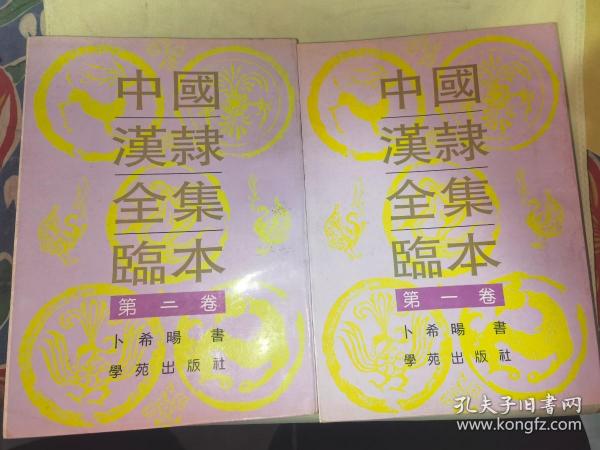 中國
漢隸
全集
臨本
第二卷
卜希暘 書
學苑出版社
中國
漢隸
全集
臨本
第一卷
卜希暘 書
學苑出版社
孔夫子旧书网
www.kongfz.com